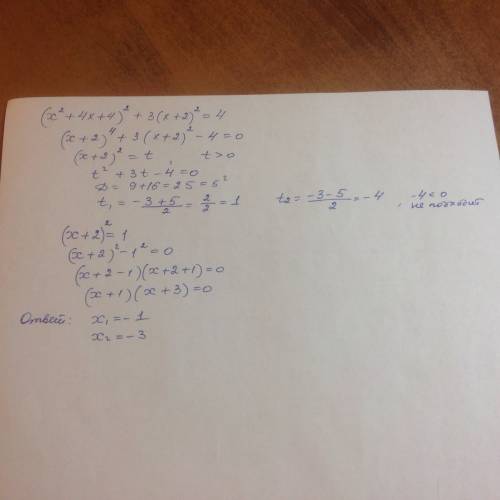 (x² + 4x + 4)² + 3(x+2)² = 4
(x+2)⁴ + 3(x+2)² - 4 = 0
(x+2)² = t, t > 0
t² + 3t - 4 = 0
D = 9 + 16 = 25 = 5²
t₁ = \frac{-3+5}{2} = \frac{2}{2} = 1 t₂ = \frac{-3-5}{2} = -4, -4 < 0 не подходит
(x+2)² = 1
(x+2)² - 1² = 0
(x+2-1)(x+2+1) = 0
(x+1)(x+3) = 0
Ответ: x₁ = -1
x₂ = -3